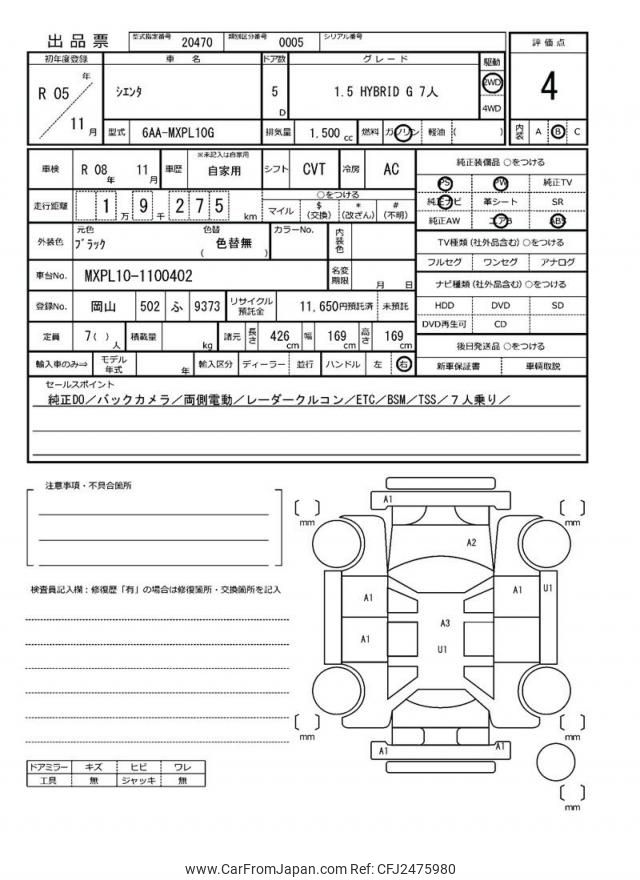 出品票 型式指定番号 20470 類別区分番号 0005 シリアル番号
評価点
4
初年度登録 車名 ドア数 グレード 駆動
R 05 年 11 月
シエンタ
5 D
1.5 HYBRID G 7人
2WD
4WD
型式 6AA-MXPL10G 排気量 1,500 cc 燃料 ガソリン 軽油 ( )
内装 A B C
車検 R 08 年 11 月 車歴 ※未記入は自家用 自家用 シフト CVT 冷房 AC
走行距離 1 万 9 千 2 7 5 km
○をつける
マイル $ (交換) * (改ざん) # (不明)
外装色 元色 ブラック 色替 ( 色替無 ) カラーNo. 内装色
車台No. MXPL10-1100402 名変期限 月 日
登録No. 岡山 502 ふ 9373 リサイクル預託金 11,650円預託済 未預託
定員 7( ) 人 積載量 kg 諸元 長さ 426 cm 幅 169 cm 高さ 169 cm
輸入車のみ⇒ モデル年式 年 輸入区分 ディーラー 並行 ハンドル 左 右
純正装備品 ○をつける
PS PW 純正TV
純正ナビ 革シート SR
純正AW エアB ABS
TV種類 (社外品含む) ○をつける
フルセグ ワンセグ アナログ
ナビ種類 (社外品含む) ○をつける
HDD DVD SD
DVD再生可 CD
後日発送品 ○をつける
新車保証書 車輌取説
セールスポイント
純正DO／バックカメラ／両側電動／レーダークルコン／ETC／BSM／TSS／７人乗り／
注意事項・不具合箇所
検査員記入欄：修復歴「有」の場合は修復箇所・交換箇所を記入
ドアミラー キズ ヒビ ワレ
工具 無 ジャッキ 無
A1
mm
mm
A2
A1
A1
U1
A3
A1
U1
mm
mm
A1
A1
mm
www.CarFromJapan.com Ref: CFJ2475980